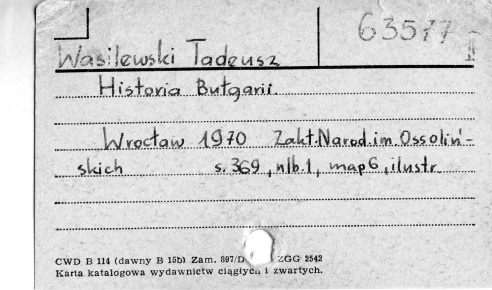 63577
Wasilewski Tadeusz
Historia Bułgarii
Wrocław 1970 Zakł.Narod.im.Ossoliń-
skich s.369, nlb.1, map 6, ilustr.
CWD B 114 (dawny B 15b) Zam. 897/D ZGG 2542
Karta katalogowa wydawnictw ciągłych i zwartych.